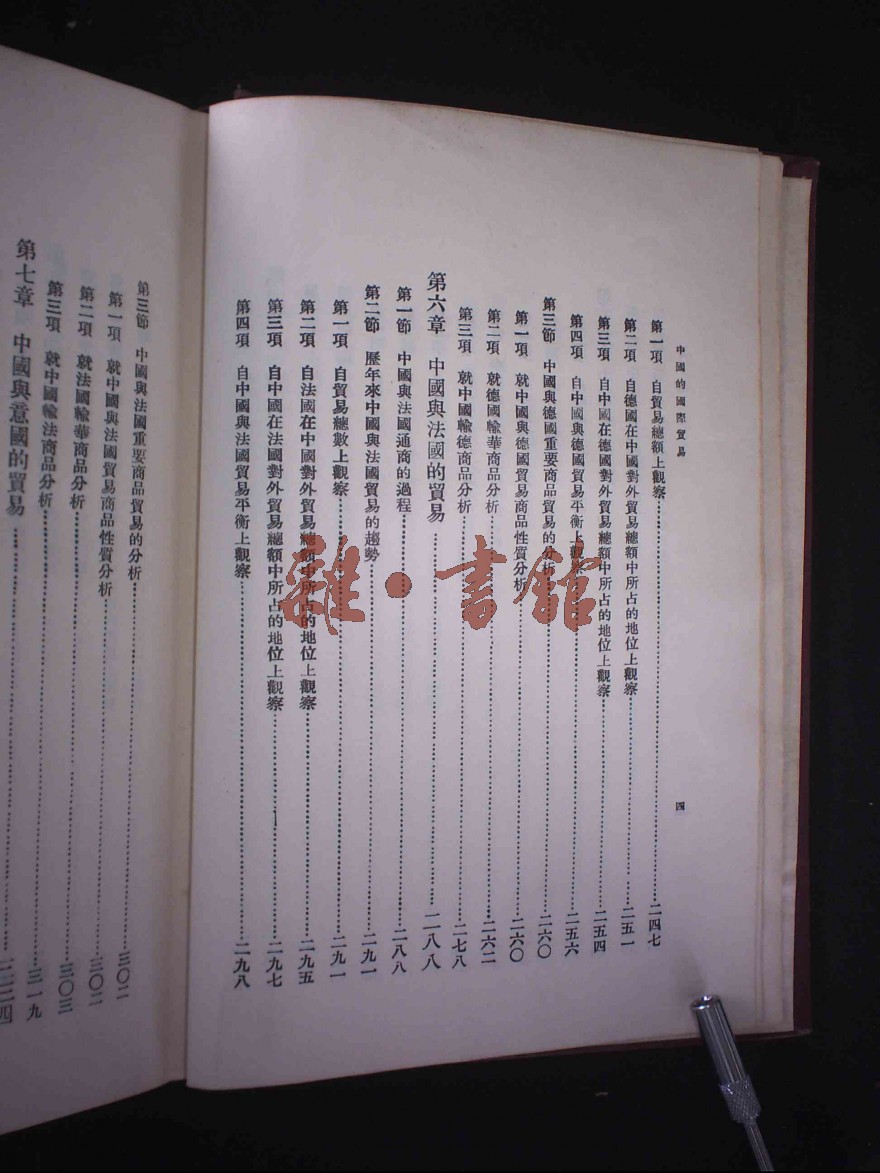 中國的國際貿易
四
第一項 自貿易總額上觀察…二四七
第二項 自德國在中國對外貿易總額中所占的地位上觀察…二五一
第三項 自中國在德國對外貿易總額中所占的地位上觀察…二五四
第四項 自中國與德國貿易平衡上觀察…二五六
第三節 中國與德國重要商品貿易的分析…二六〇
第一項 就中國與德國貿易商品性質分析…二六〇
第二項 就德國輸華商品分析…二六二
第三項 就中國輸德商品分析…二七八
第六章 中國與法國的貿易…二八八
第一節 中國與法國通商的過程…二八八
第二節 歷年來中國與法國貿易的趨勢…二九一
第一項 自貿易總數上觀察…二九一
第二項 自法國在中國對外貿易總額中所占的地位上觀察…二九五
第三項 自中國在法國對外貿易總額中所占的地位上觀察…二九七
第四項 自中國與法國貿易平衡上觀察…二九八
第三節 中國與法國重要商品貿易的分析…三〇二
第一項 就中國與法國貿易商品性質分析…三〇二
第二項 就法國輸華商品分析…三〇三
第三項 就中國輸法商品分析…三一九
第七章 中國與意國的貿易
雜·書館